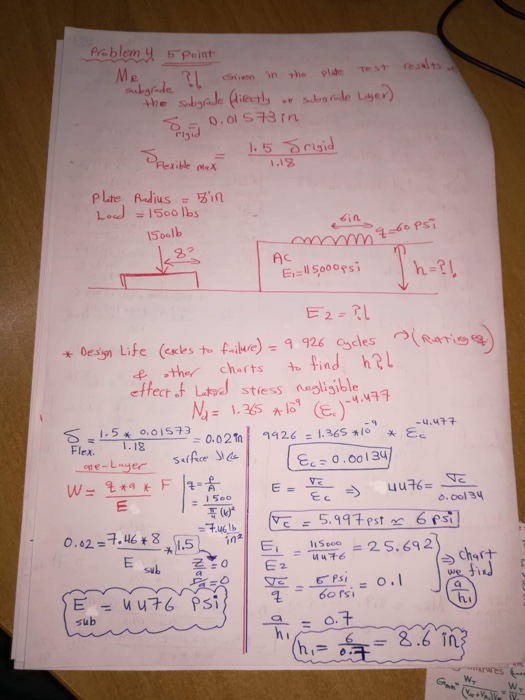 Problem 4 5 Point
MR subgrade ?! Given in the plate Test results
the subgrade (directly on subgrade Layer)
δ rigid = 0.01573 in
δ Flexible max = 1.5 δ rigid / 1.18
Plate Radius = 8in
Load = 1500 lbs
1500lb
8"
6in
q=60 PSi
AC
E1=115,000 psi
h=?!
E2 = ?!
* Design Life (cycles to failure) = 9926 cycles → (Rutting)
& other charts to find h?!
effect of Lateral stress negligible
Nd = 1.365 *10^-9 (εc)^-4.477
δ Flex. = 1.5 * 0.01573 / 1.18 = 0.02 in
surface
one-Layer
W = q*a*F / E
q = P/A
= 1500 /
= 7.46 lb/in²
0.02 = 7.46 * 8 / E sub * 1.5
z/a = 0
r/a = 0
E sub = 4476 PSi
9926 = 1.365 *10^-9 * εc^-4.477
εc = 0.00134
E = σc / εc ⇒ 4476 = σc / 0.00134
σc = 5.997 psi ≈ 6 psi
E1/E2 = 115000 / 4476 = 25.692
σc/q = 6 PSi / 60 PSi = 0.1
⇒ chart
we find
a/h1
a/h1 = 0.7
h1 = 6/0.7 = 8.6 in
Gmm = WT